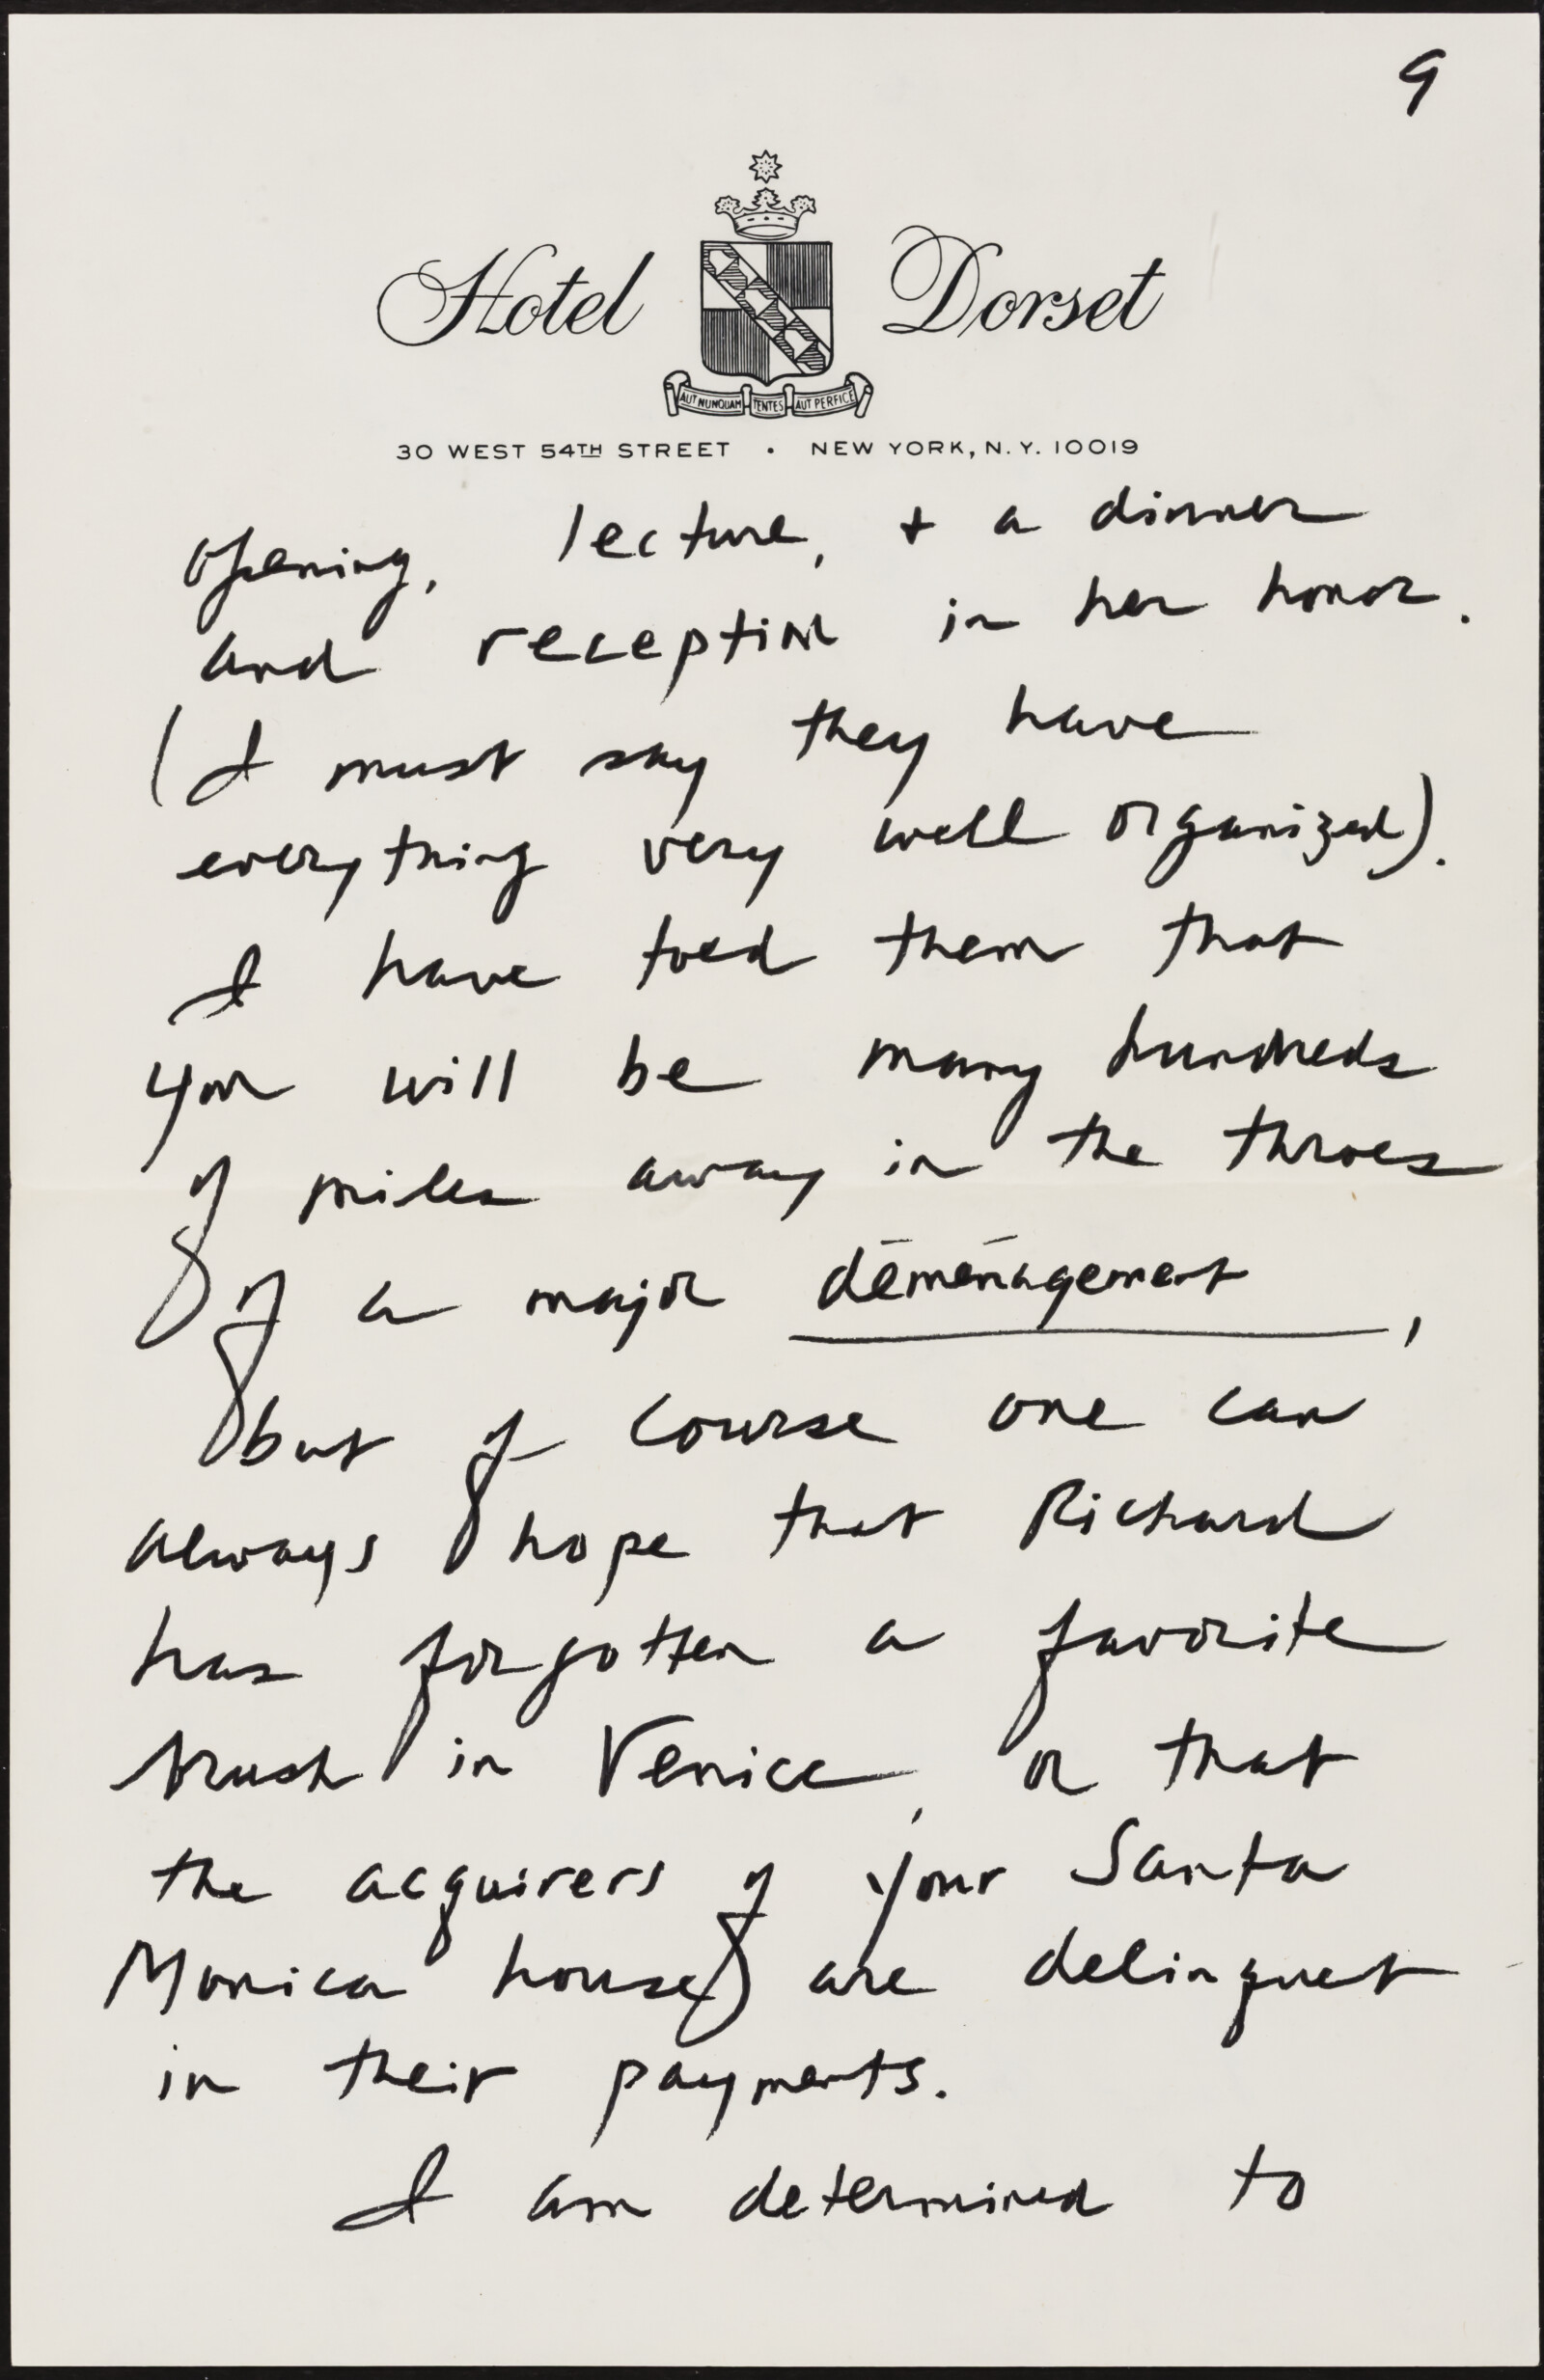 9
Hotel Dorset
AUT NUNQUAM TENTES AUT PERFICE
30 WEST 54TH STREET • NEW YORK, N.Y. 10019
opening, lecture, + a dinner
and reception in her honor.
(I must say they have
everything very well organized).
I have told them that
you will be many hundreds
of miles away in the throes
of a major déménagement,
but of course one can
always hope that Richard
has forgotten a favorite
brush in Venice, or that
the acquirers of your Santa
Monica house are delinquet
in their payments.
I am determined to